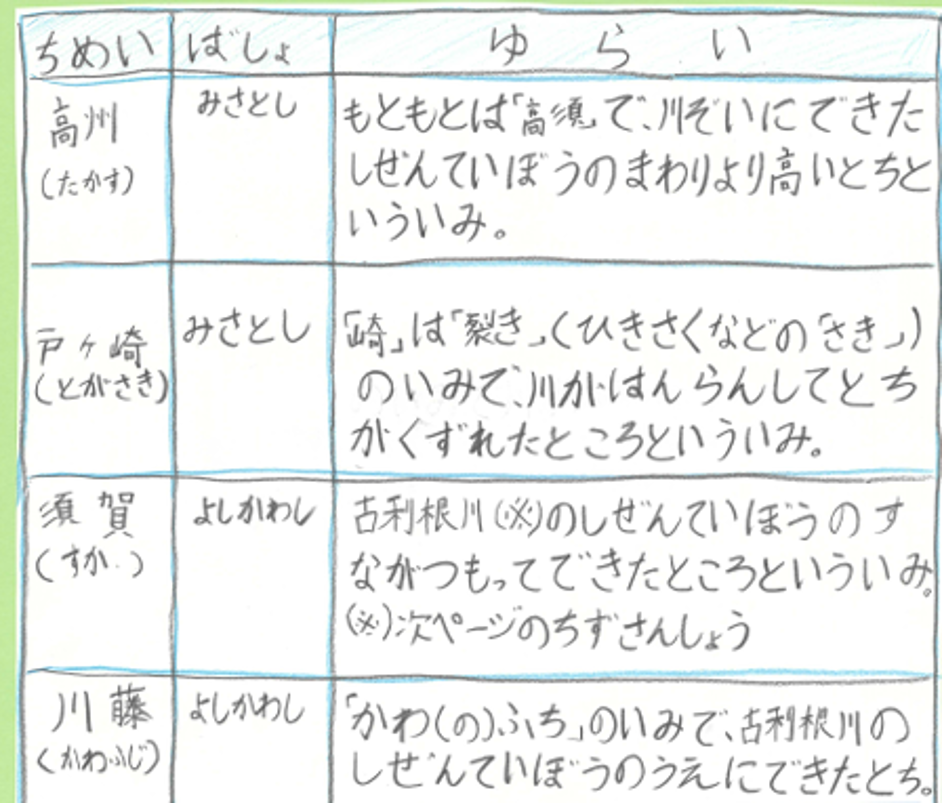 ちめい ばしょ ゆらい
高州 みさとし もともとは「高須」で、川ぞいにできた
(たかす) しぜんていぼうのまわりより高いとちと
いういみ。
戸ヶ崎 みさとし 「崎」は「裂き」(ひきさくなどの「さき」)
(とがさき) のいみで、川がはんらんしてとち
がくずれたところといういみ。
須賀 よしかわし 古利根川(※)のしぜんていぼうのす
(すか) ながつもってできたところといういみ。
(※)次ページのちずさんしょう
川藤 よしかわし 「かわ(の)ふち」のいみで、古利根川の
(かわふじ) しぜんていぼうのうえにできたとち。